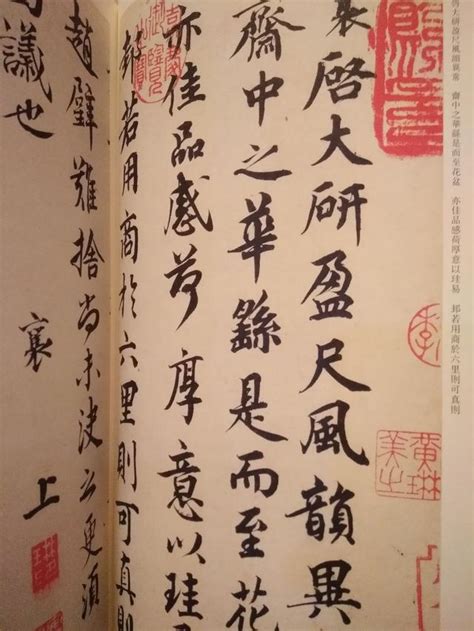 啓大研盈尺風韻異常 齋中之華繇是而至花盆 亦佳品感荷厚意以珪易 邽若用商於六里則可真則
襄啓大研盈尺風韻異
齋中之華繇是而至花
亦佳品感荷厚意以珪
邽若用商於六里則可真則
趙璧難捨尚未決之更須
議也
襄上
黃琳美之